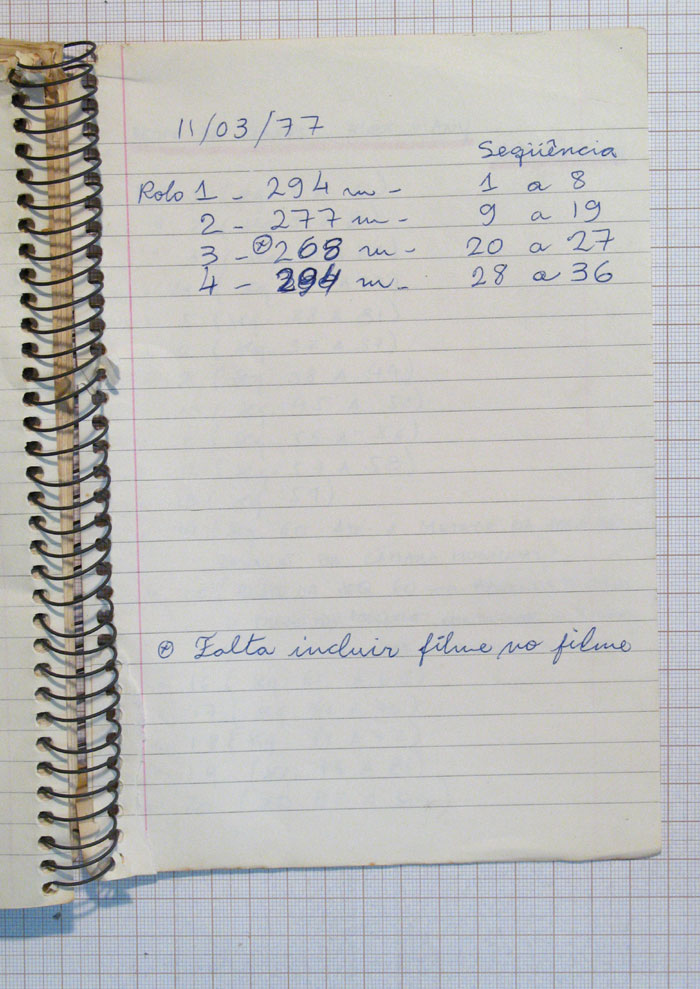 11/03/77
Seqüência
Rolo 1 - 294 m - 1 a 8
2 - 277 m - 9 a 19
3 - ⊗ 268 m - 20 a 27
4 - 294 m - 28 a 36
⊗ Falta incluir filme no filme